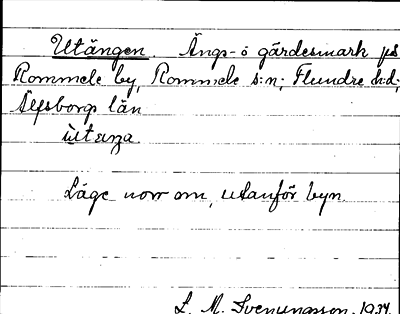 Utängen. Ängs- o gärdesmark på
Rommele by, Rommele s:n; Flundre h:d;
Älfsborgs län
ùtæŋa
Läge norr om, utanför byn.
L. M. Svenungsson. 1934.